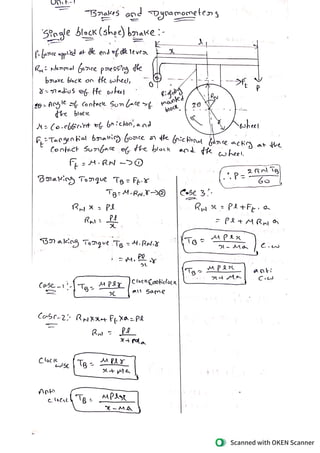 Unit-1
Brakes and Dynamometers
Single block (shoe) brake:-
P = force applied at the end of the lever
RN = Normal force pressing the
brake block on the wheel,
r = radius of the wheel
2θ = Angle of contact surface of
the block
μ = Co-efficient of friction, and
Ft = Tangential braking force or the frictional force acting at the
contact surface of the block and the wheel.
l
x
O
Rigidly
mounted
block
RN
2θ
Ft
P
wheel
Ft = μ.RN → ①
Braking Torque TB = Ft.r
TB = μ.RN.r → ②
RN x = Pl
RN = Pl/x
Braking Torque TB = μ.RN.r
= μ. Pl/x r
Case-1:- TB = μPlr/x
all same
Case-2:- RN×x + Ft×a = Pl
RN = Pl/x+μa
Clock
wise TB = μPlr/x+μa
Anti
clock TB = μPlr/x-μa
∴ P = 2πNTB/60
Case 3:-
RN x = Pl + Ft.a
= Pl + μRN a
TB = μPlr/x-μa C.W
TB = μPlr/x+μa anti
C.W
Scanned with OKEN Scanner